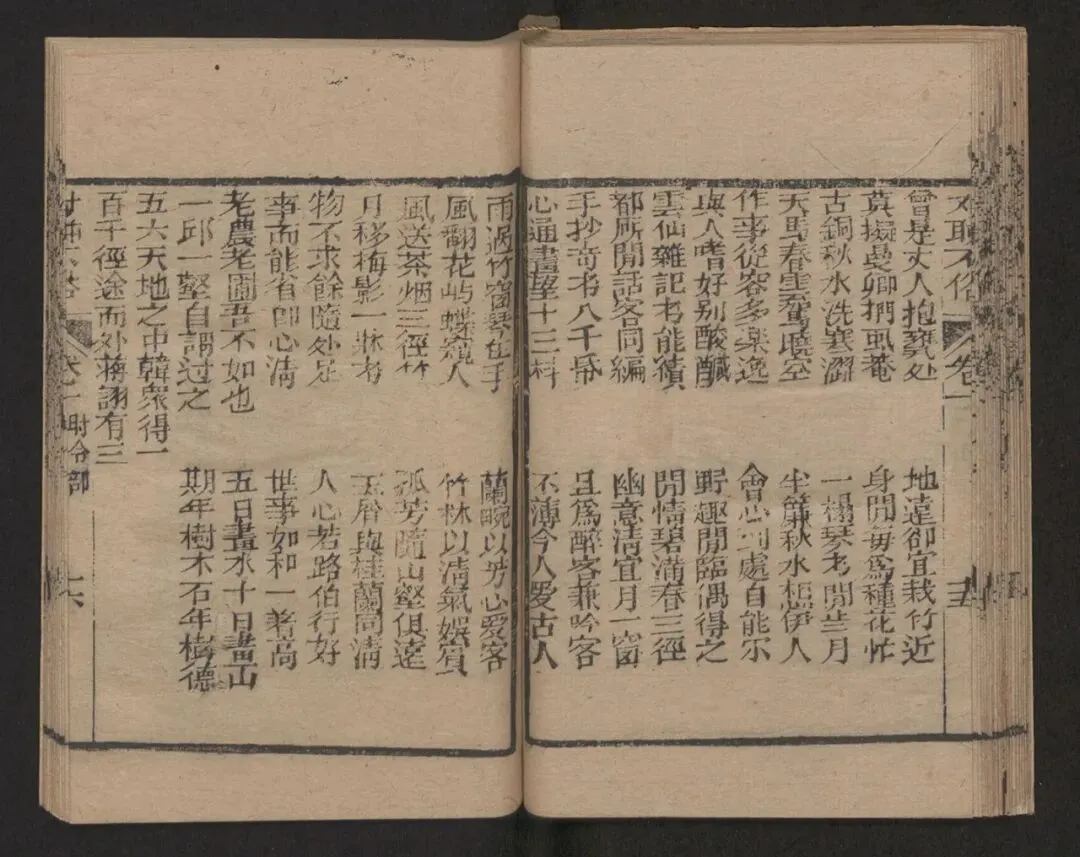 卷一
曾是丈人抱甕处
地遠卻宜栽竹近
莫擬曼卿捫虱菴
身閒毎為種花忙
古銅秋水洗寒澀
一榻琴书閒月
天馬春雲奮曉空
半簾秋水想伊人
作事從容多樂逸
會心到處自能乐
與人嗜好别酸鹹
野趣閒臨偶得之
雲仙雜記书能積
閒情碧滿春三徑
都厛閒話客同編
幽意清宜月一窗
手抄竒书八千帋
且為醉客兼吟客
心通畫學十三科
不薄今人爱古人
雨過竹窗琴在手
蘭畹以芳心爱客
風翻花屿蝶窺人
竹林以清氣娯賓
風送茶烟三徑竹
孤芳隨山壑俱遠
月移梅影一牀书
玉屑與桂蘭同清
物不求餘隨处足
人心若路伯行好
事而能省即心清
世事如和一著高
老農老圃吾不如也
五日畫水十日畫山
一邱一壑自謂過之
期年樹木石年樹德
五六天地之中韓衆得一
百千徑途而处蔣詡有三
卷一 时令部
十六